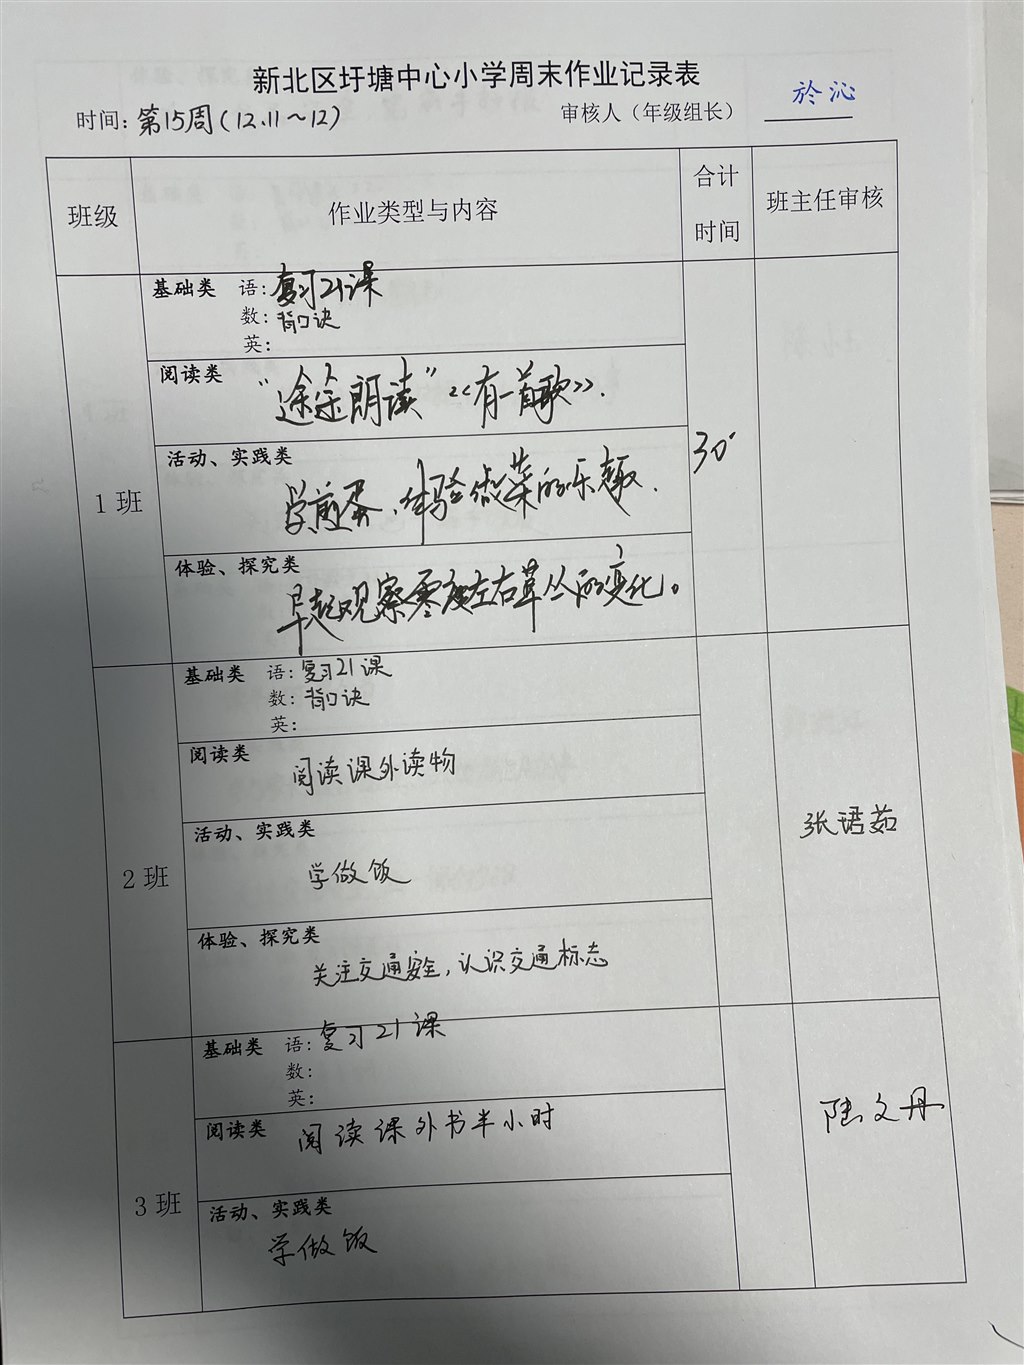 新北区圩塘中心小学周末作业记录表
时间：第15周（12.11～12） 审核人（年级组长） 於沁
班级 作业类型与内容 合计时间 班主任审核
1班
基础类 语：复习21课
数：背口诀
英：
阅读类
"途途朗读"《有一首歌》.
活动、实践类
学煎蛋，体验做菜的乐趣.
体验、探究类
早起观察零度左右草丛的变化。
30'
2班
基础类 语：复习21课
数：背口诀
英：
阅读类
阅读课外读物
活动、实践类
学做饭
体验、探究类
关注交通安全，认识交通标志
张珺茹
3班
基础类 语：复习21课
数：
英：
阅读类 阅读课外书半小时
活动、实践类
学做饭
陆文丹